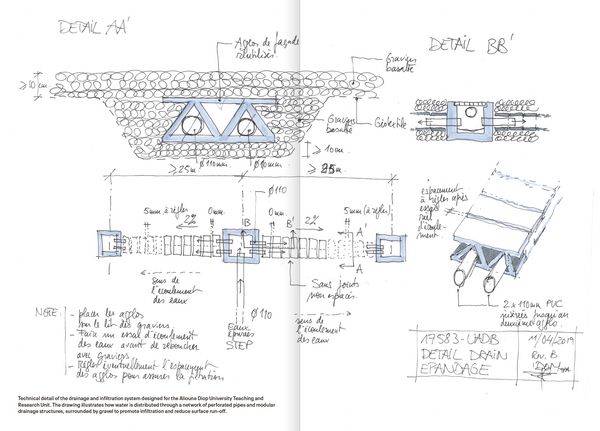 DETAIL AA'
Agglos de façade
réutilisés.
Graviers
basalte
≥ 10 cm
Graviers
basalte
Géotextile
≥ 10 cm.
Ø 110 mm.
≥ 25m
≥ 25m.
DETAIL BB'
Ø110
5mm (à régler)
0mm.
0mm
5mm (à régler)
2%
2%
B
B'
A'
A
sens de
l'écoulement
des eaux
Sans joints
non espacés
Ø 110
EAUX
ÉPURÉES
STEP
sens de
l'écoulement
des eaux
NOTE:
- placer les agglos
sur le lit des graviers
- Faire un essai d'écoulement
des eaux avant de reboucher
avec graviers
- Régler éventuellement l'espacement
des agglos pour assurer la filtration
espacement
à régler après
essai
d'écoule-
ment
2 x 110mm PVC
jusqu'au
deuxième agglo.
17583-UADB
DETAIL DRAIN
EPANDAGE
11/04/2019
Rév. B
Technical detail of the drainage and infiltration system designed for the Alioune Diop University Teaching and
Research Unit. The drawing illustrates how water is distributed through a network of perforated pipes and modular
drainage structures, surrounded by gravel to promote infiltration and reduce surface run-off.